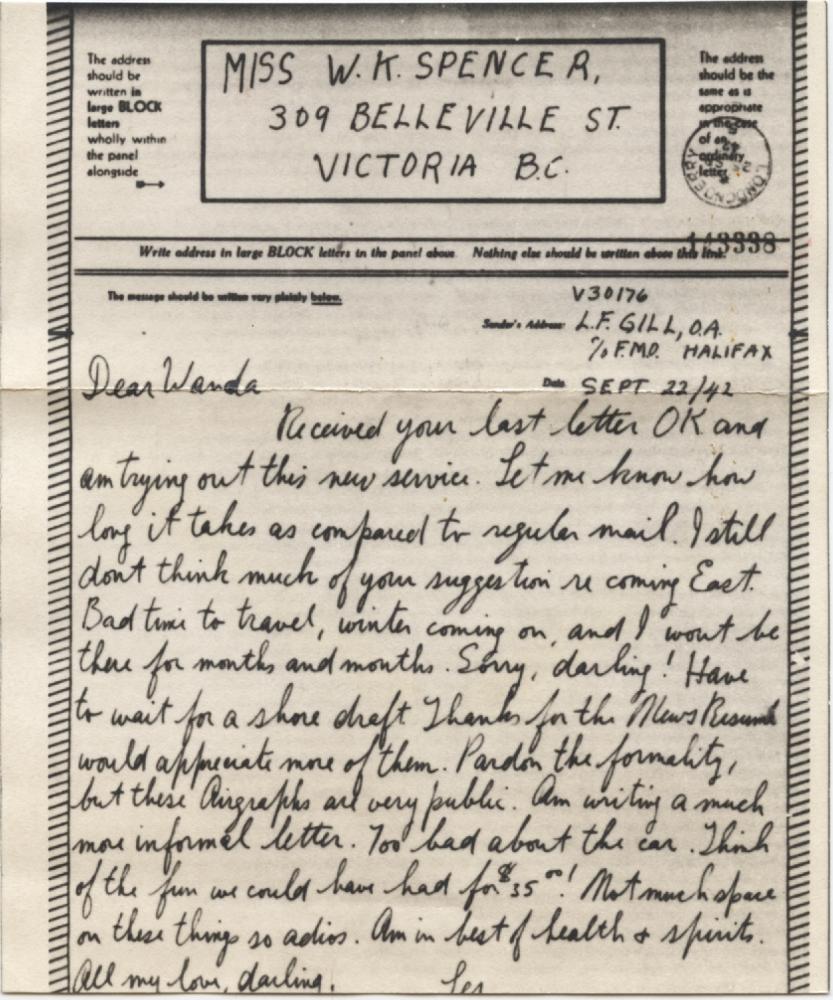 The address
should be
written in
large BLOCK
letters
wholly within
the panel
alongside
MISS W.K. SPENCER,
309 BELLEVILLE ST.
VICTORIA B.C.
The address
should be the
same as is
appropriate
in the case
of an
ordinary
letter.
LONDONDERRY
143338
Write address in large BLOCK letters in the panel above. Nothing else should be written above this line.
The message should be written very plainly below.
V30176
Sender's Address: L.F. GILL, O.A.
% F.M.O. HALIFAX
Date SEPT 22/42
Dear Wanda
Received your last letter OK and
am trying out this new service. Let me know how
long it takes as compared to regular mail. I still
dont think much of your suggestion re coming East.
Bad time to travel, winter coming on, and I wont be
there for months and months. Sorry, darling! Have
to wait for a shore draft Thanks for the News Resumé
would appreciate more of them. Pardon the formality,
but these Airgraphs are very public. Am writing a much
more informal letter. Too bad about the car. Think
of the fun we could have had for $35⁰⁰! Not much space
on these things so adios. Am in best of health & spirits.
All my love, darling. Les